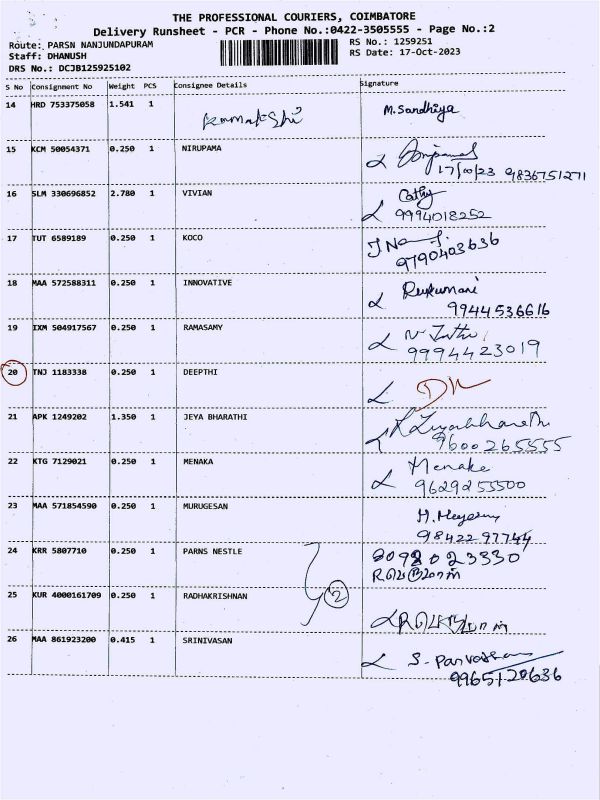 THE PROFESSIONAL COURIERS, COIMBATORE
Delivery Runsheet - PCR - Phone No.:0422-3505555 - Page No.:2
Route: PARSN NANJUNDAPURAM
RS No.: 1259251
Staff: DHANUSH
RS Date: 17-Oct-2023
DRS No.: DCJB125925102
S No Consignment No Weight PCS Consignee Details Signature
14 HRD 753375058 1.541 1 M.Sandhiya
15 KCM 50054371 0.250 1 NIRUPAMA
17/10/23 9836751271
16 SLM 330696852 2.780 1 VIVIAN Cathy
9994018252
17 TUT 6589189 0.250 1 KOCO
9790403636
18 MAA 572588311 0.250 1 INNOVATIVE Rukumani
9944536616
19 IXM 504917567 0.250 1 RAMASAMY
9994423019
20 TNJ 1183338 0.250 1 DEEPTHI
21 APK 1249202 1.350 1 JEYA BHARATHI
9600265555
22 KTG 7129021 0.250 1 MENAKA Menake
9629253500
23 MAA 571854590 0.250 1 MURUGESAN
9842297744
24 KRR 5807710 0.250 1 PARNS NESTLE 8092023330
25 KUR 4000161709 0.250 1 RADHAKRISHNAN 2
26 MAA 861923200 0.415 1 SRINIVASAN
9965120636